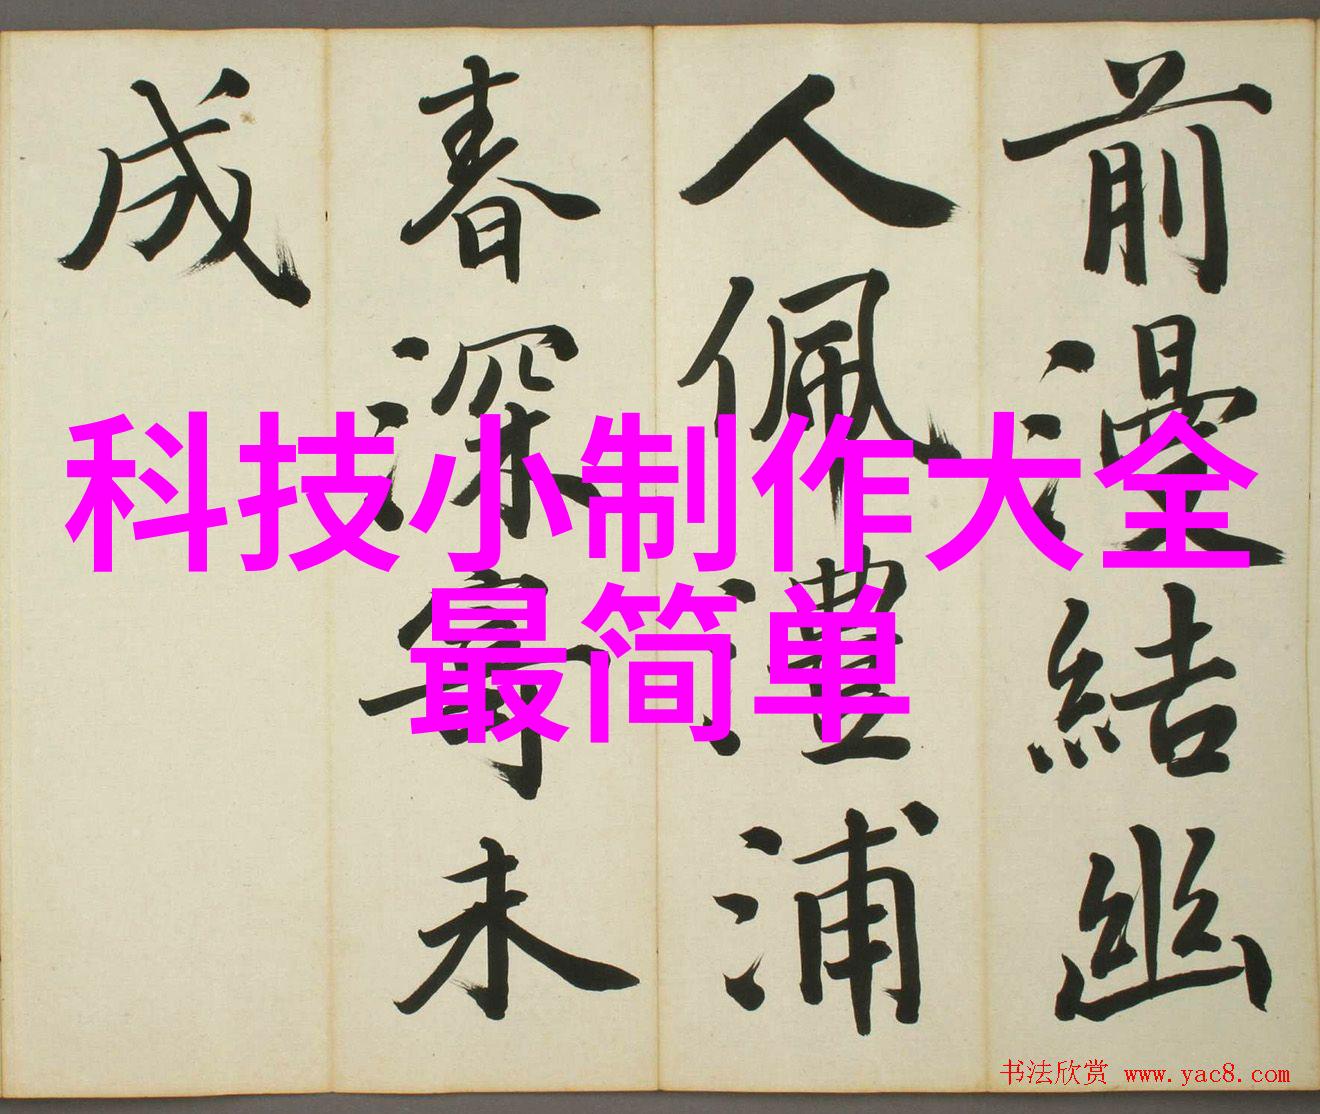 前漫結幽
人佩澧浦
春深寿未
成
科技小制作大全
最简单
书法欣赏 www.yac8.com